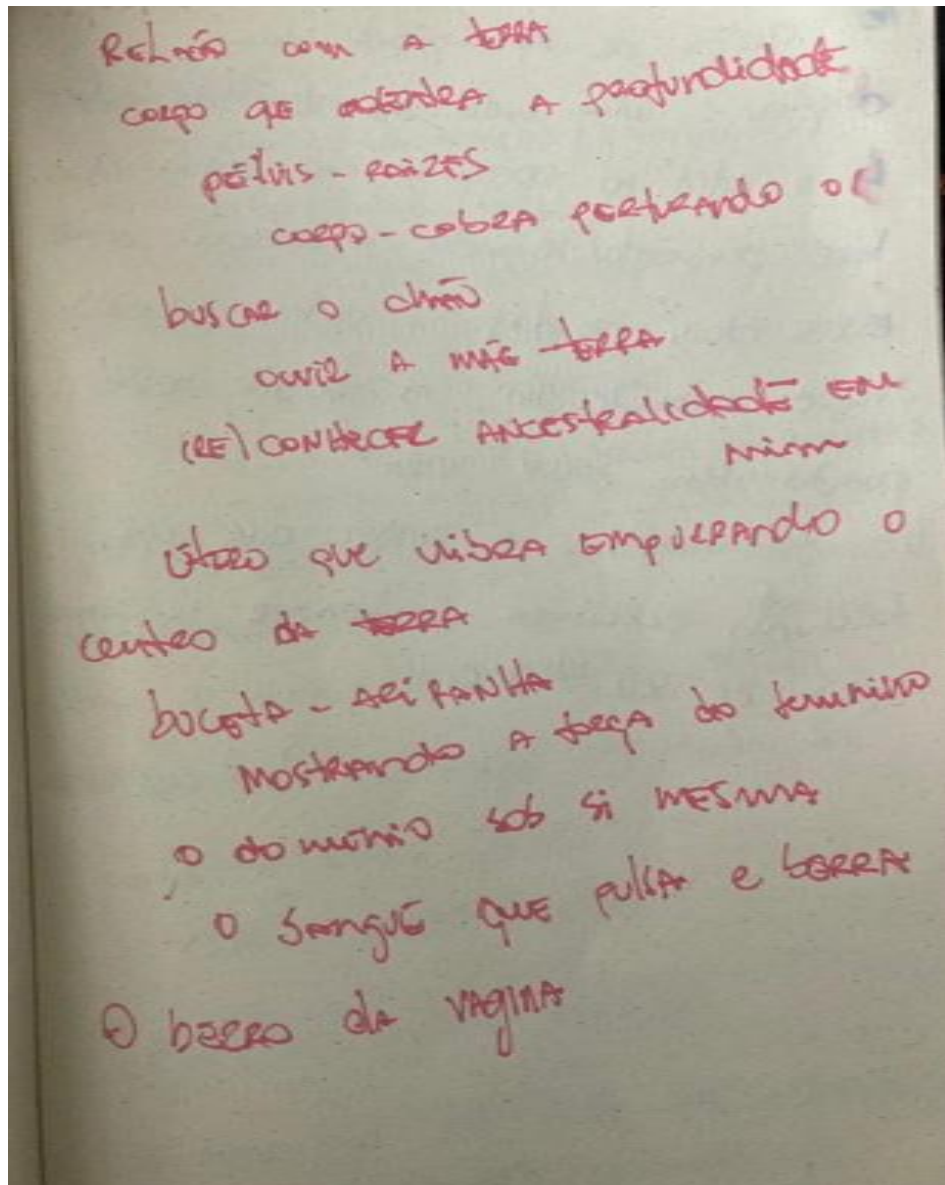 RELAÇÃO COM A TERRA
CORPO QUE ADENTRA A PROFUNDIDADE
PÉLVIS - RAÍZES
CORPO - COBRA PERFURANDO O
BUSCAR O CHÃO
OUVIR A MÃE TERRA
(RE)CONHECER ANCESTRALIDADE EM
MIM
ÚTERO QUE VIBRA EMPURRANDO O
CENTRO DA TERRA
BUCETA - ARIRANHA
MOSTRANDO A FORÇA DO FEMININO
O DOMÍNIO SOB SI MESMA
O SANGUE QUE PULSA E BERRA
O BERRO DA VAGINA